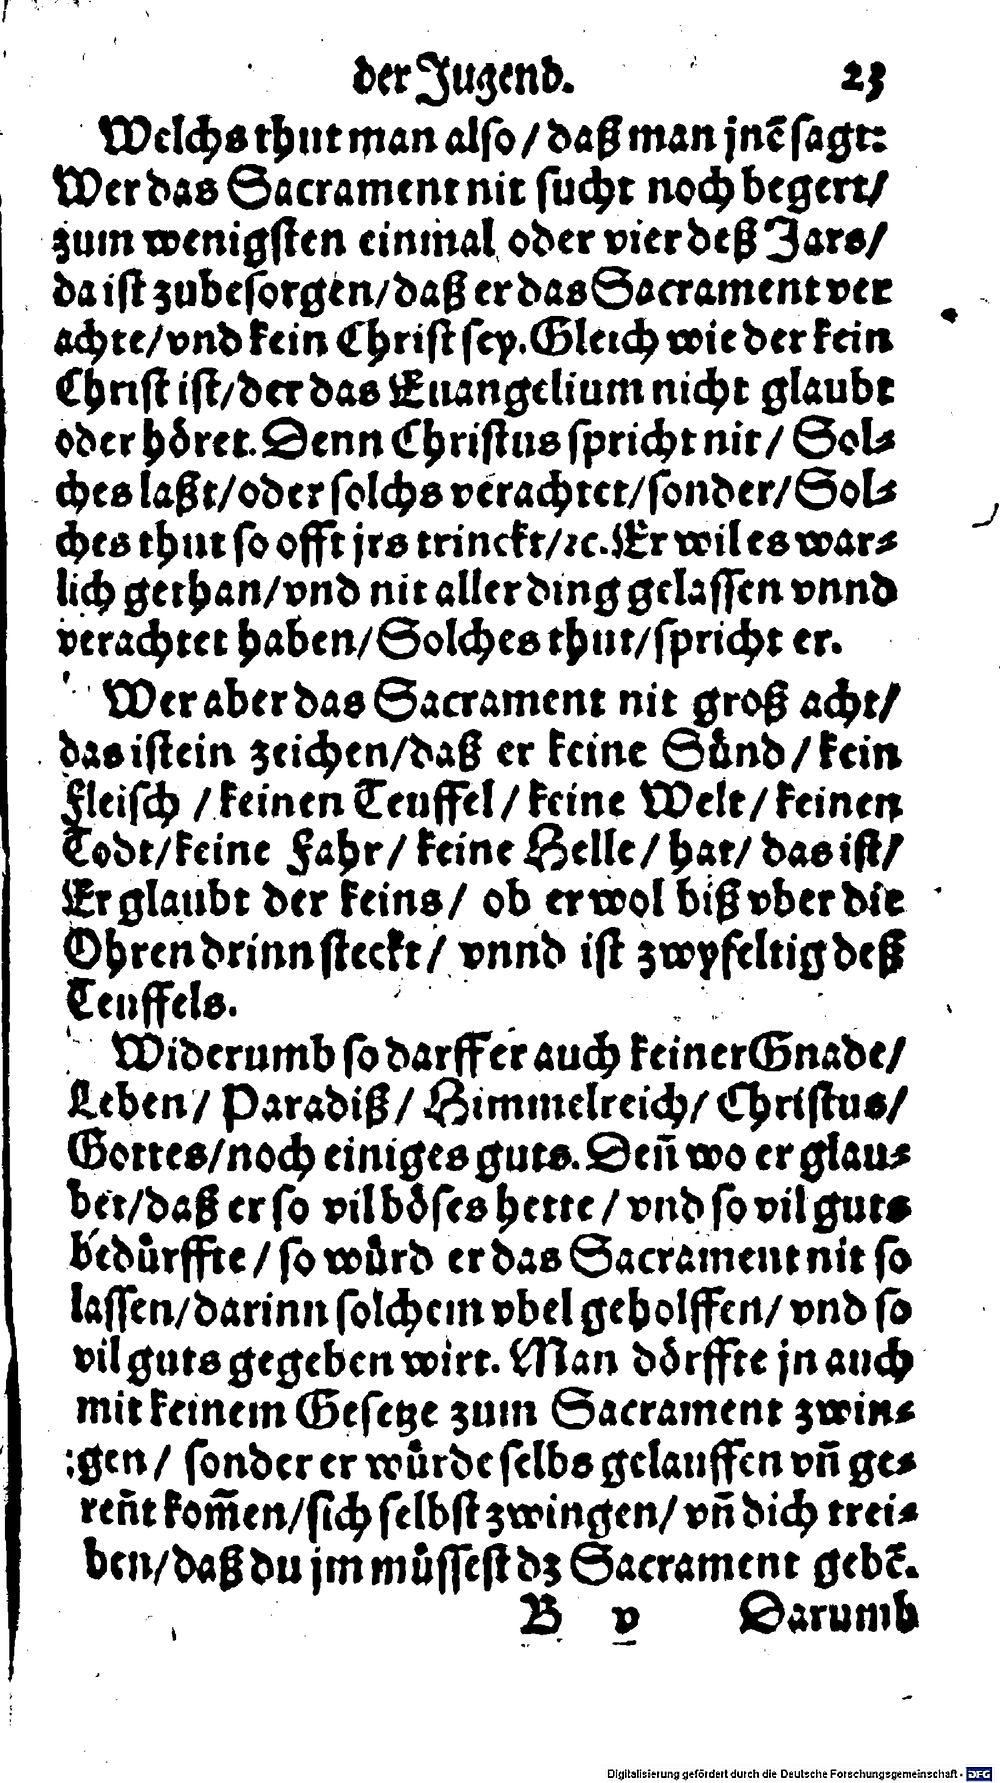 der Jugend. 23
Welchs thut man also / daß man jnē sagt:
Wer das Sacrament nit sucht noch begert/
zum wenigsten einmal oder vier deß Jars/
da ist zubesorgen/daß er das Sacrament ver
achte/vnd kein Christ sey. Gleich wie der kein
Christ ist/der das Euangelium nicht glaubt
oder hoͤret. Denn Christus spricht nit/ Sol⸗
ches laßt/oder solchs verachtet/sonder/Sol⸗
ches thut so offt jrs trinckt/ꝛc. Er wil es war⸗
lich gethan/vnd nit aller ding gelassen vnnd
verachtet haben/Solches thut/spricht er.
Wer aber das Sacrament nit groß acht/
das ist ein zeichen/daß er keine Suͤnd / kein
Fleisch / keinen Teuffel / keine Welt / keinen
Todt/keine Fahr/ keine Helle/ hat/ das ist/
Er glaubt der keins/ ob er wol biß vber die
Ohren drinn steckt/ vnnd ist zwyfeltig deß
Teuffels.
Widerumb so darff er auch keiner Gnade/
Leben/ Paradiß/ Himmelreich/ Christus/
Gottes/noch einiges guts. Deñ wo er glau⸗
bet/daß er so vil boͤses hette / vnd so vil guts
beduͤrffte / so wuͤrd er das Sacrament nit so
lassen/darinn solchem vbel geholffen/ vnd so
vil guts gegeben wirt. Man doͤrffte jn auch
mit keinem Gesetze zum Sacrament zwin⸗
gen / sonder er wuͤrde selbs gelauffen vñ ge⸗
reñt kom̃en/sich selbst zwingen/ vñ dich trei⸗
ben/daß du jm muͤssest dz Sacrament gebē.
B v Darumb
Digitalisierung gefördert durch die Deutsche Forschungsgemeinschaft - DFG